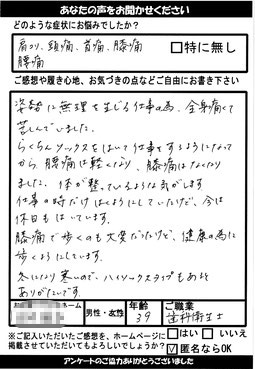 あなたの声をお聞かせください
どのような症状にお悩みでしたか？
肩コリ、頭痛、首痛、膝痛
腰痛
□特に無し
ご感想や履き心地、お気づきの点などご自由にお書き下さい
姿勢に無理を生じる仕事の為、全身痛くて
苦しんでいました。
らくちんソックスをはいて仕事をするようになって
から、腰痛は軽くなり、膝痛はなくなり
ました。体が整っているような気がします
仕事の時だけはくようにしていたけど、今は
休日もはいています。
膝痛で歩くのも大変だったけど、健康の為に
歩くようにしています。
冬になり寒いので、ハイソックスタイプもあると
ありがたいです。
ホームネーム
男性・女性
年齢
39
ご職業
歯科衛生士
※ご記入いただいたご感想を、ホームページに
掲載させていただいてもよろしいでしょうか？
□はい □いいえ
☑匿名ならOK
アンケートのご協力ありがとうございました